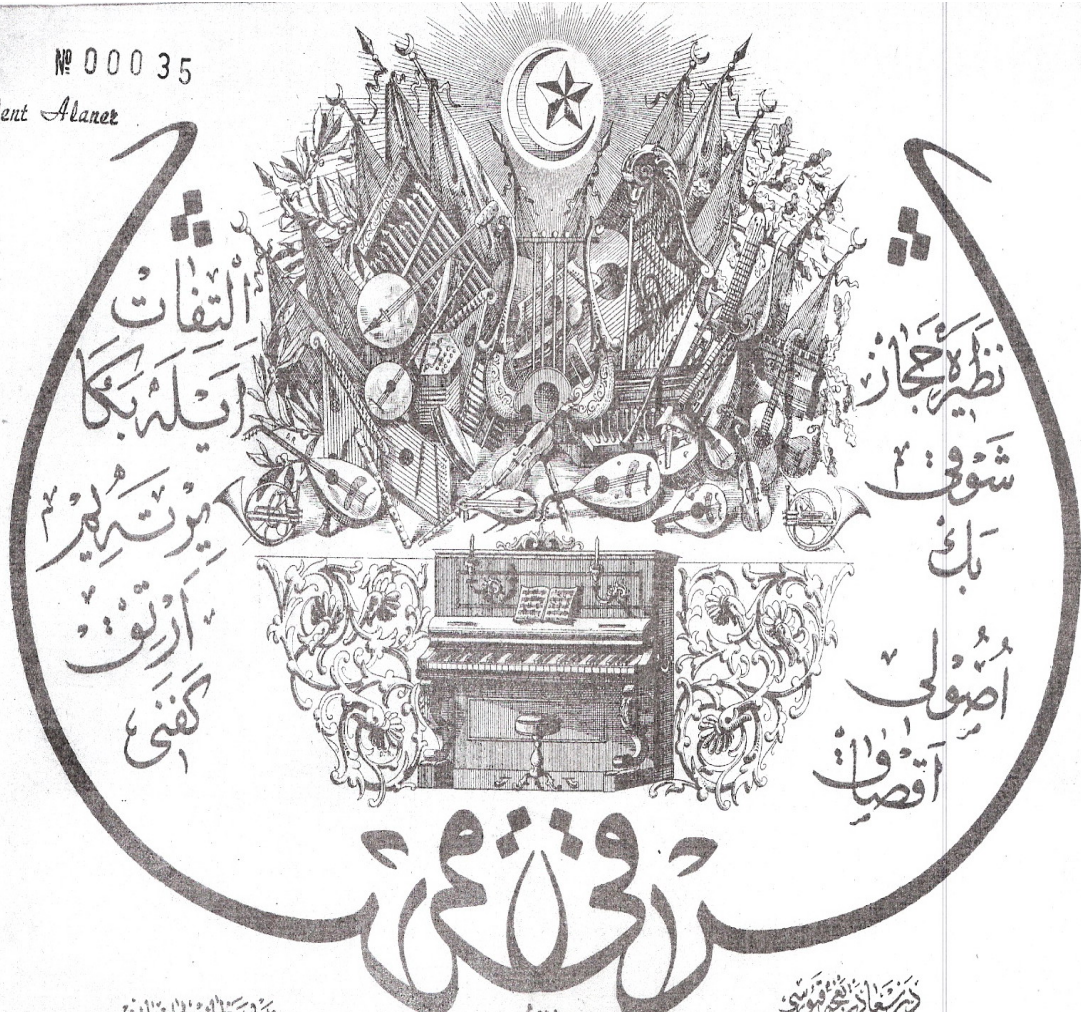 № 00035
ent Alaner
نظیره حجاز
شوقی
بك
اصولی
آقصاق
التفات
ایله بكا
آرتق
كفنی
شرقی